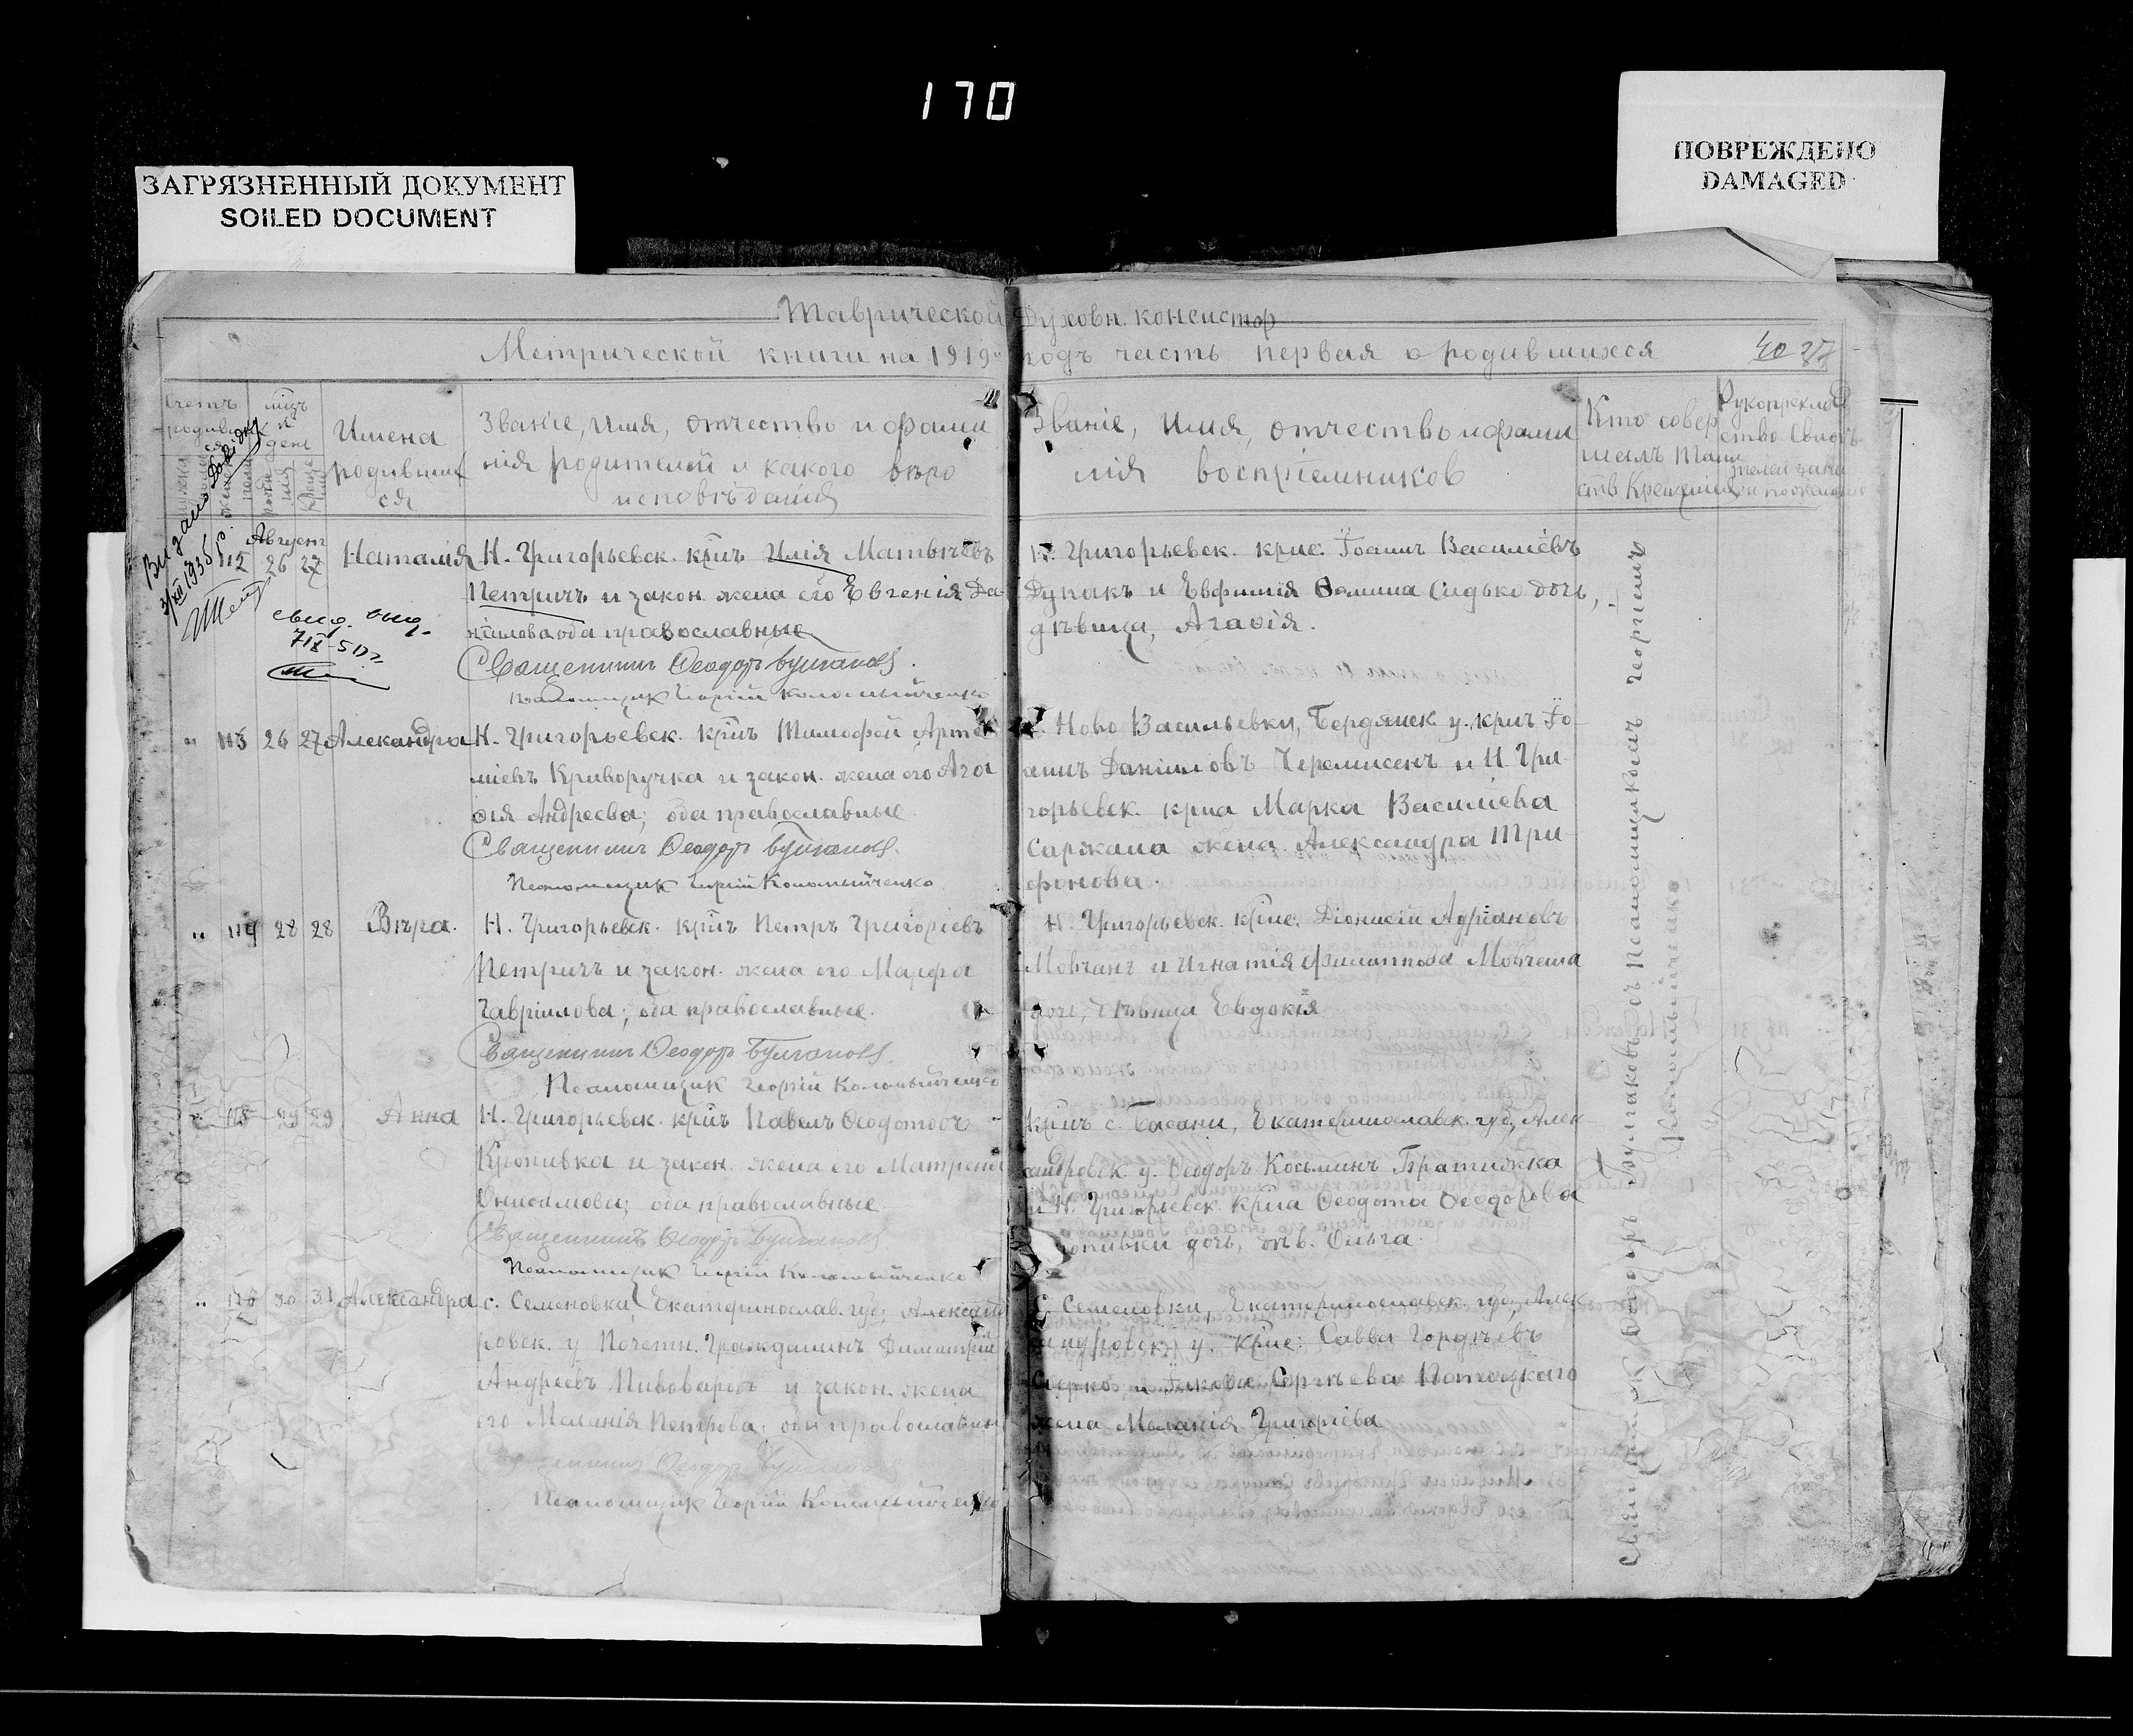 170
ПОВРЕЖДЕНО
DAMAGED
ЗАГРЯЗНЕННЫЙ ДОКУМЕНТ
SOILED DOCUMENT
Таврической Духовн. консистор
Метрической книги на 1919 годъ часть первая о родившихся
40 27
Счетъ
родивших
ся
мцъ
и
день
Имена
родивших
ся
Званіе, имя, отчество и фами
лія родителей и какого вѣро
исповѣданія
Званіе, имя, отчество и фами
лія воспріемниковъ
Кто совер
шалъ таин
ств крещенія
Рукоприклад
ство свидѣ
Август
112 26 27 Наталія
Н. Григорьевск. крнъ Илія Матвѣевъ
Петричъ и закон. жена его Евгенія Да-
нилова оба православные
Священникъ Ѳеодоръ Булгаковъ.
Псаломщик Георгій Коломыйченко
Н. Григорьевск. крне. Іоаннъ Василіевъ
Дупакъ и Евфимія Ѳомина Сидько дочь,
дѣвица, Агаѳія.
113 26 27 Александра
Н. Григорьевск. крнъ Тимофей Арте
міевъ Криворучка и закон. жена его Ага
ѳія Андреева; оба православные
Священникъ Ѳеодоръ Булгаковъ.
Псаломщик Георгій Коломыйченко
Ново Васильевки, Бердянск у. крнъ Іо-
аннъ Даніиловъ Черемисенъ и Н. Гри-
горьевск. крна Марка Василіева
Саржана жена Александра Три-
фонова.
114 28 28 Вѣра.
Н. Григорьевск. крнъ Петръ Григоріевъ
Петричъ и закон. жена его Марфа
Гавріилова; оба православные.
Священникъ Ѳеодоръ Булгаковъ.
Псаломщик Георгій Коломыйченко
Н. Григорьевск. крне. Діонисій Адріановъ
Мовчанъ и Игнатія Филиппова Мовчана
дочь, дѣвица Евдокія
115 29 29 Анна
Н. Григорьевск. крнъ Павелъ Ѳеодотовъ
Кропивка и закон. жена его Матрена
Онисимова; оба православные
Священникъ Ѳеодоръ Булгаковъ
Псаломщик Георгій Коломыйченко
крнъ с. Басани, Екатеринославск. губ, Алек-
сандровск у. Ѳеодоръ Косьминъ Братишка
и Н. Григорьевск. крна Ѳеодота Ѳеодорова
Кропивки дочь, дѣв. Ольга.
116 30 31 Александра
с. Семеновки, Екатеринослав. губ; Александ
ровск. у Почетн. Гражданинъ Димитрій
Андреевъ Пивоваровъ и закон. жена
его Меланія Петрова; оба православны
Ѳеодоръ Булгаковъ
Псаломщик Георгій Коломыйченко
С. Семеновки, Екатеринославск. губ, Алек
сандровск у. крне: Савва Гордѣевъ
и Іакова Сергѣева Патоцкаго
жена Меланія Григоріева
Священник Ѳеодоръ Булгаковъ съ псаломщикомъ Георгіемъ
Коломыйченко